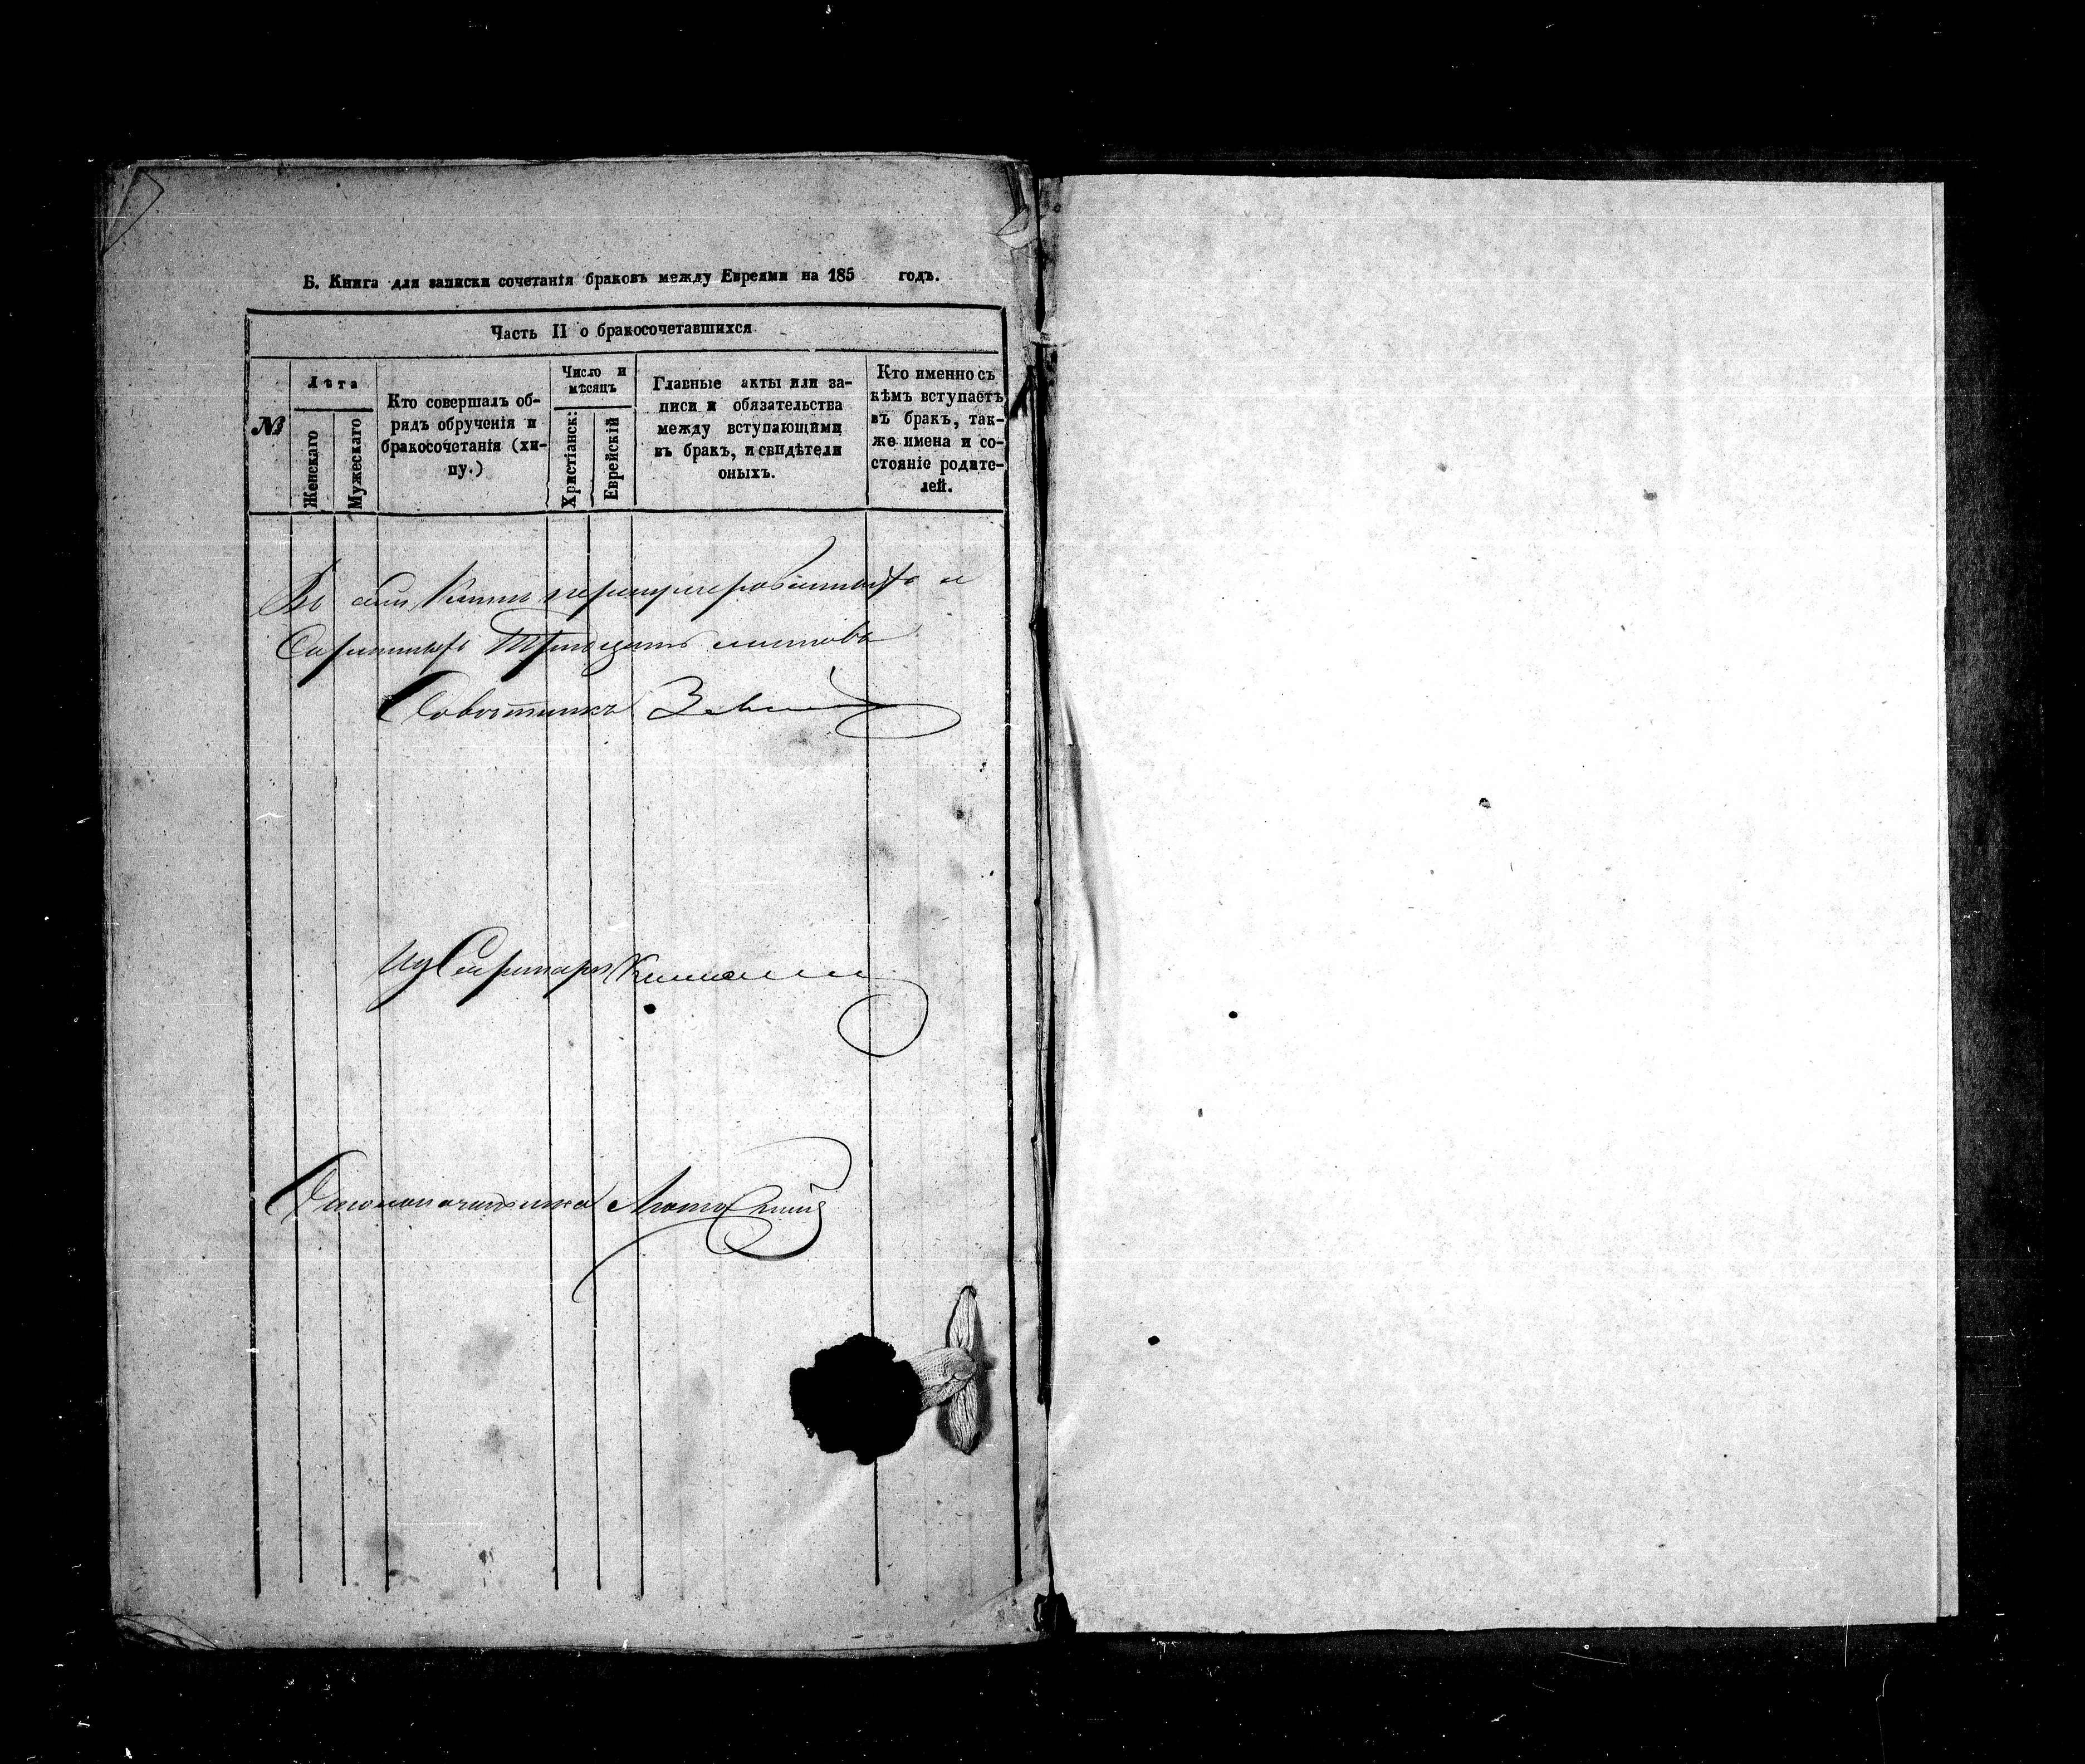 Б. Книга для записки сочетанія браковъ между Евреями на 185 годъ.
Часть II о бракосочетавшихся
№
Лѣта
Женскаго
Мужескаго
Кто совершалъ об-
рядъ обрученія и
бракосочетанія (хи-
пу.)
Число и
мѣсяцъ
Христіанск:
Еврейскій
Главные акты или за-
писи и обязательства
между вступающими
въ бракъ, и свидѣтели
оныхъ.
Кто именно съ
кѣмъ вступаетъ
въ брак, так-
же имена и со-
стояніе родите-
лей.
Въ сей Книгѣ перенумерованныхъ и
Скрепленныхъ Тридцать листовъ
Совѣтникъ
Секретарь
Столоначальника